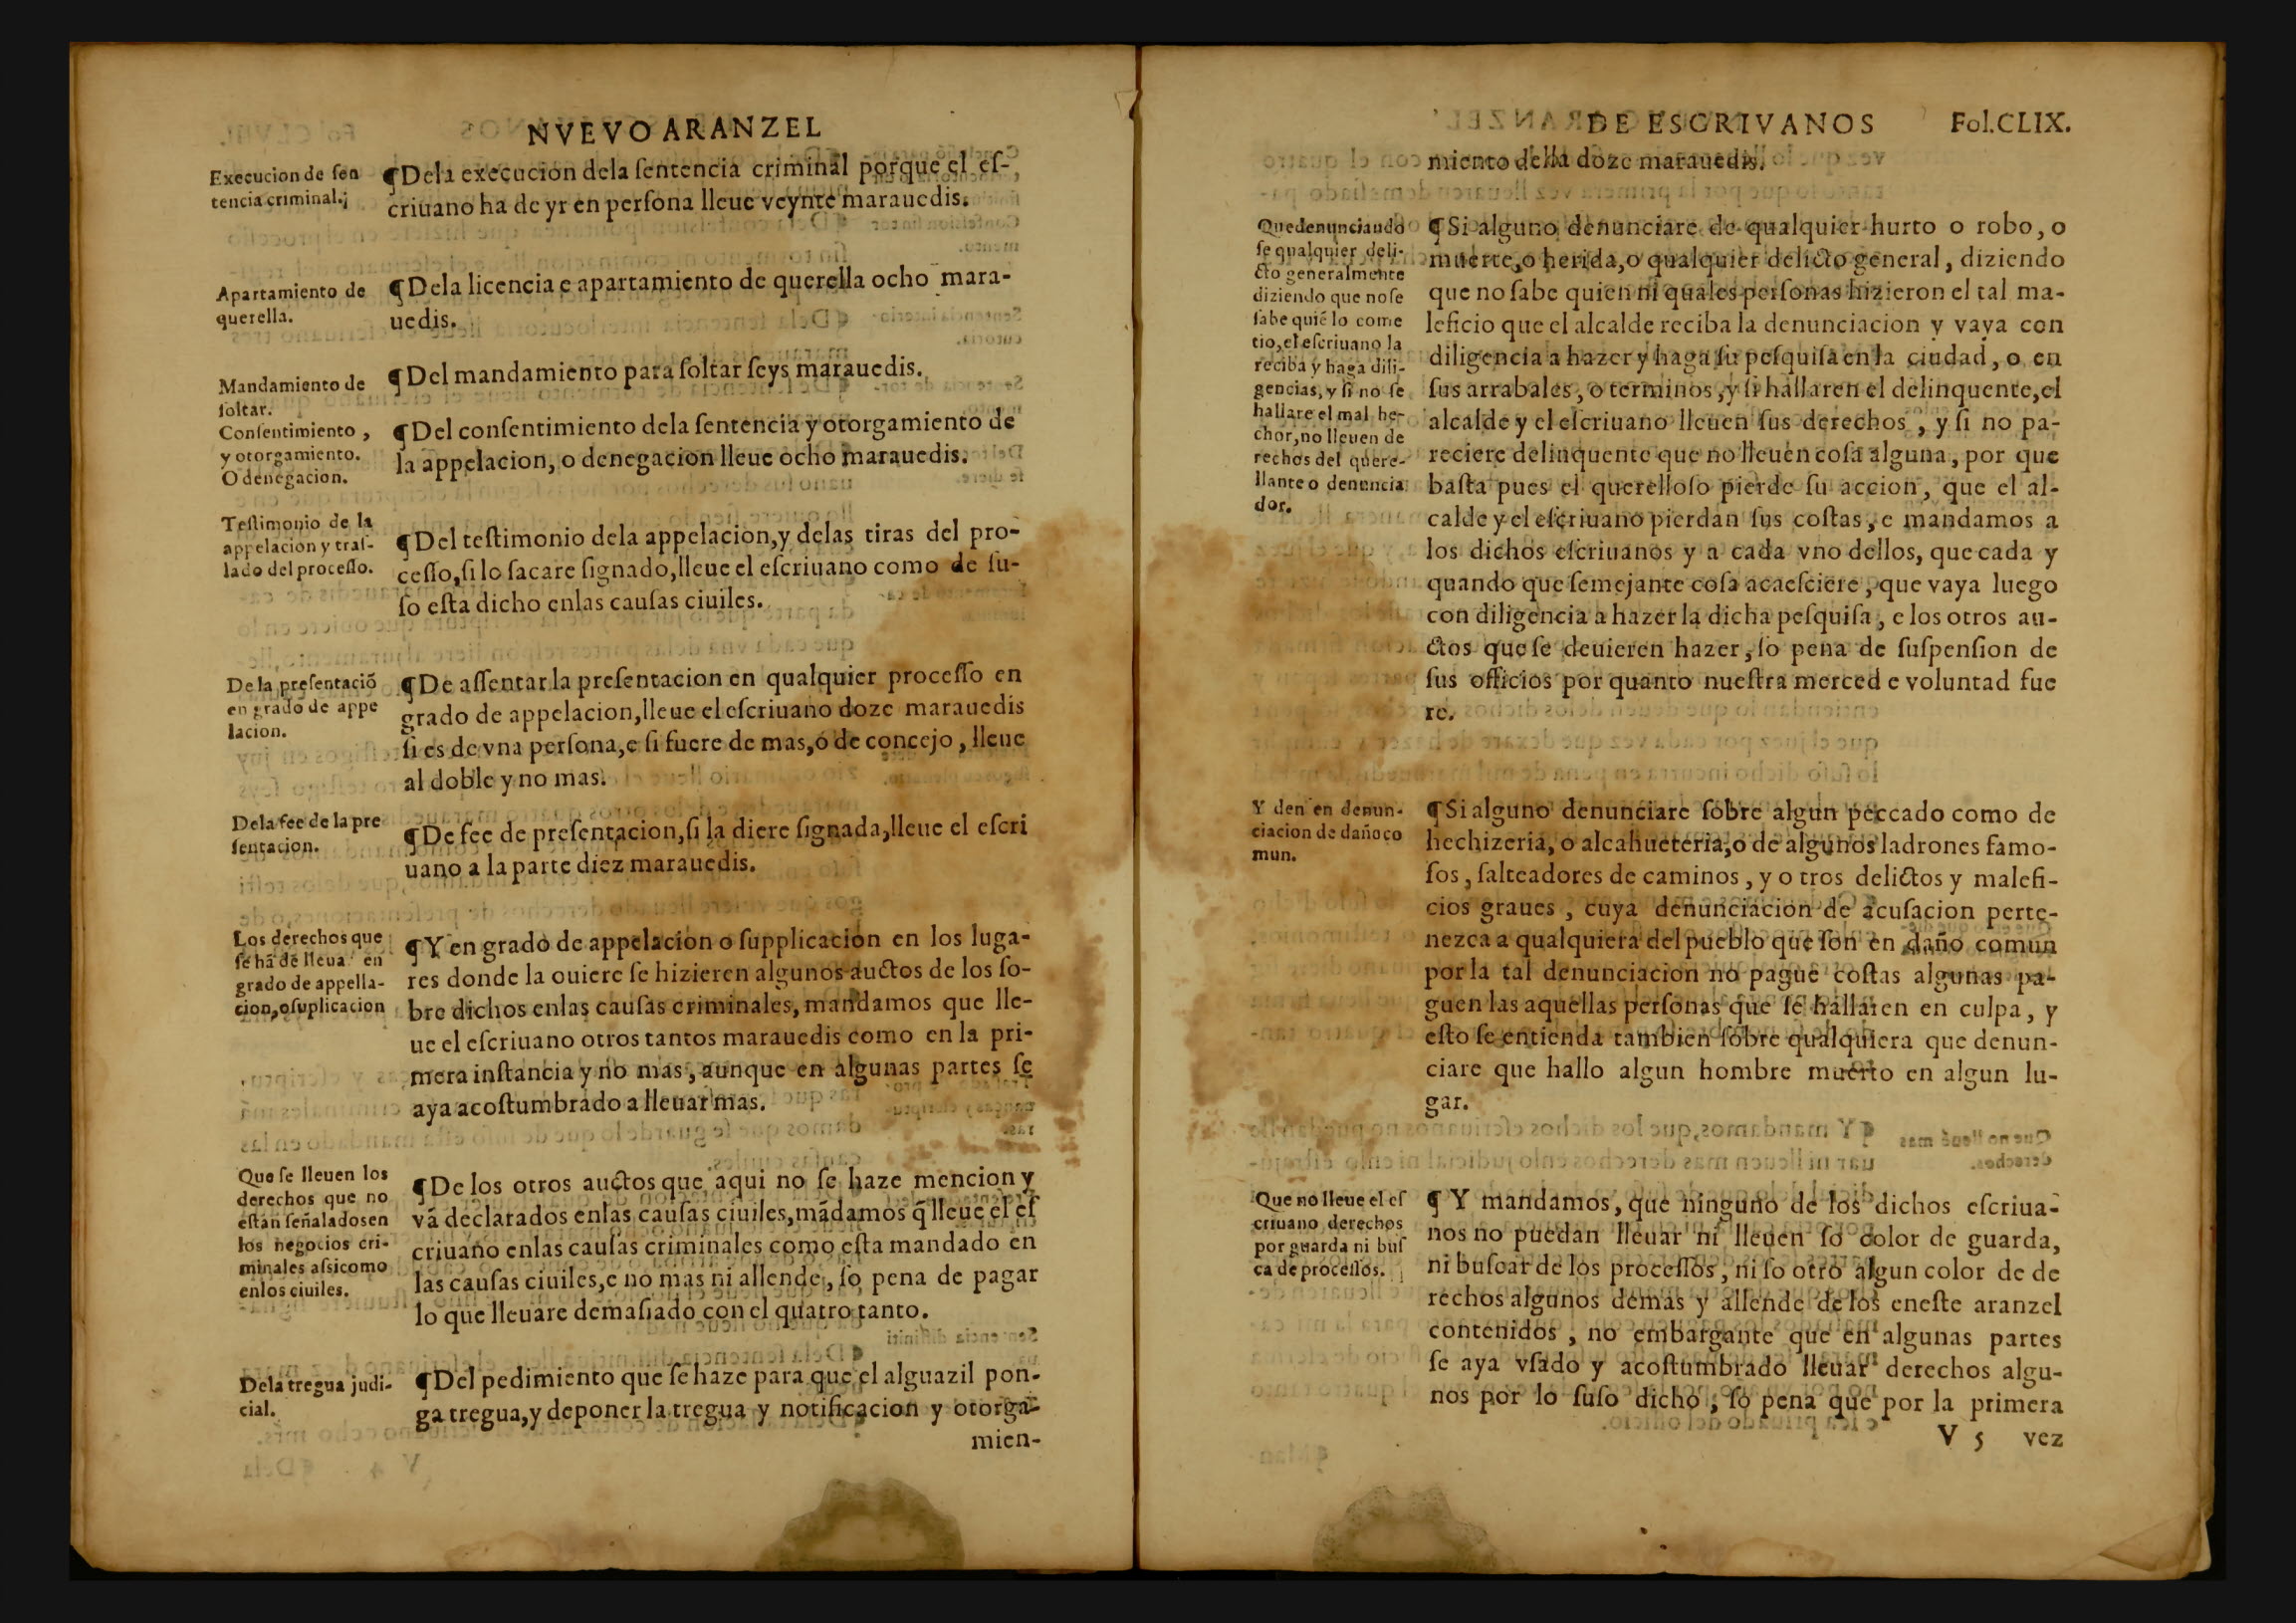 NVEVO ARANZEL
Execucion de sen
tencia criminal.
¶Dela execucion dela ſentencia criminal porque el eſ-
criuano ha de yr en perſona lleue veynte marauedis.
Apartamiento de
querella.
¶Dela licencia e apartamiento de querella ocho mara-
uedis.
Mandamiento de
ſoltar.
¶Del mandamiento para ſoltar ſeys marauedis.
Conſentimiento,
y otorgamiento.
O denegacion.
¶Del conſentimiento dela ſentencia y otorgamiento de
la appelacion, o denegacion lleue ocho marauedis.
Teſtimonio de la
appelacion y traſ-
lado del proceſſo.
¶Del teſtimonio dela appelacion,y delas tiras del pro-
ceſſo,ſi lo ſacare ſignado,lleue el eſcriuano como de ſu-
ſo eſta dicho enlas cauſas ciuiles.
De la preſentació
en grado de appe
lacion.
¶De aſſentar la preſentacion en qualquier proceſſo en
grado de appelacion,lleue el eſcriuano doze marauedis
ſi es de vna perſona,e ſi fuere de mas,o de concejo, lleue
al doble y no mas.
Dela fee de la pre
ſentacion.
¶De fee de preſentacion,ſi la diere ſignada,lleue el eſcri
uano a la parte diez marauedis.
Los derechos que
ſe hā de lleuar en
grado de appella-
cion,o ſuplicacion
¶Y en grado de appelacion o ſupplicacion en los luga-
res donde la ouiere ſe hizieren algunos auctos de los ſo-
bre dichos enlas cauſas criminales, mandamos que lle-
ue el eſcriuano otros tantos marauedis como en la pri-
mera inſtancia y no mas, aunque en algunas partes ſe
aya acoſtumbrado a lleuar mas.
Que ſe lleuen los
derechos que no
eſtan ſeñalados en
los negocios cri-
minales aſsi como
enlos ciuiles.
¶De los otros auctos que aqui no ſe haze mencion y
vā declarados enlas cauſas ciuiles,mādamos q̄ lleue el eſ
criuano enlas cauſas criminales como eſta mandado en
las cauſas ciuiles,e no mas ni allende, ſo pena de pagar
lo que lleuare demaſiado con el quatro tanto.
Dela tregua judi-
cial.
¶Del pedimiento que ſe haze para que el alguazil pon-
ga tregua,y deponer la tregua y notificacion y otorga-
mien-
DE ESCRIVANOS Fol.CLIX.
miento della doze marauedis.
Que denunciando
ſe qualquier deli-
cto generalmente
diziendo que no ſe
ſabe quié lo come
tio,el eſcriuano la
reciba y haga dili-
gencias, y ſi no ſe
hallare el mal he-
chor,no lleuen de
rechos del quere-
llante o denuncia
dor.
¶Si alguno denunciare de qualquier hurto o robo, o
muerte,o herida,o qualquier delicto general, diziendo
que no ſabe quien ni quales perſonas hizieron el tal ma-
leficio que el alcalde reciba la denunciacion y vaya con
diligencia a hazer y haga ſu peſquiſa en la ciudad, o en
ſus arrabales, o terminos, y ſi hallaren el delinquente,el
alcalde y el eſcriuano lleuen ſus derechos, y ſi no pa-
reciere delinquente que no lleuen coſa alguna, por que
baſta pues el querelloſo pierde ſu accion, que el al-
calde y el eſcriuano pierdan ſus coſtas, e mandamos a
los dichos eſcriuanos y a cada vno dellos, que cada y
quando que ſemejante coſa acaeſciere, que vaya luego
con diligencia a hazer la dicha peſquiſa, e los otros au-
ctos que ſe deuieren hazer, ſo pena de ſuſpenſion de
ſus officios por quanto nueſtra merced e voluntad fue
re.
Y den en denun-
ciacion de daño co
mun.
¶Si alguno denunciare ſobre algun peccado como de
hechizeria, o alcahueteria,o de algunos ladrones famo-
ſos, ſalteadores de caminos, y o tros delictos y malefi-
cios graues, cuya denunciacion de acuſacion perte-
nezca a qualquiera del pueblo que ſon en daño comun
por la tal denunciacion no pague coſtas algunas pa-
guen las aquellas perſonas que ſe hallaren en culpa, y
eſto ſe entienda tambien ſobre qualquiera que denun-
ciare que hallo algun hombre muerto en algun lu-
gar.
Que no lleue el eſ
criuano derechos
por guarda ni buſ
ca de proceſſos.
¶Y mandamos, que ninguno de los dichos eſcriua-
nos no puedan lleuar ni lleuen ſo color de guarda,
ni buſcar de los proceſſos, ni ſo otro algun color de de
rechos algunos demas y allende de los eneſte aranzel
contenidos, no embargante que en algunas partes
ſe aya vſado y acoſtumbrado lleuar derechos algu-
nos por lo ſuſo dicho, ſo pena que por la primera
V 5 vez